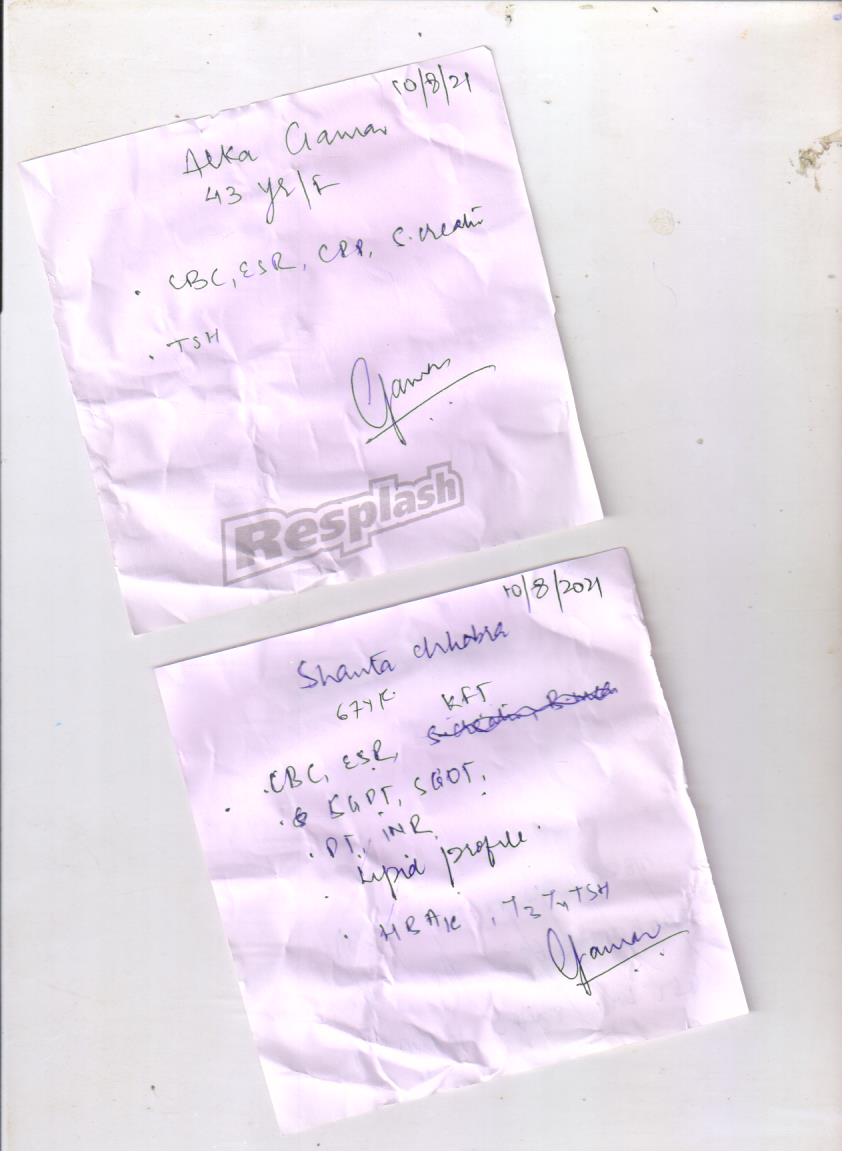 10/8/21
Alka Gaman
43 yr/F
. CBC, ESR, CRP, S. creatin
. TSH
Gaman
Resplash
10/8/2021
Shanta Chhabra
67 yr. KFT
. CBC, ESR,
. SGPT, SGOT,
. PT, INR
. Lipid profile.
. HBA1c, T3 T4 TSH
Gaman